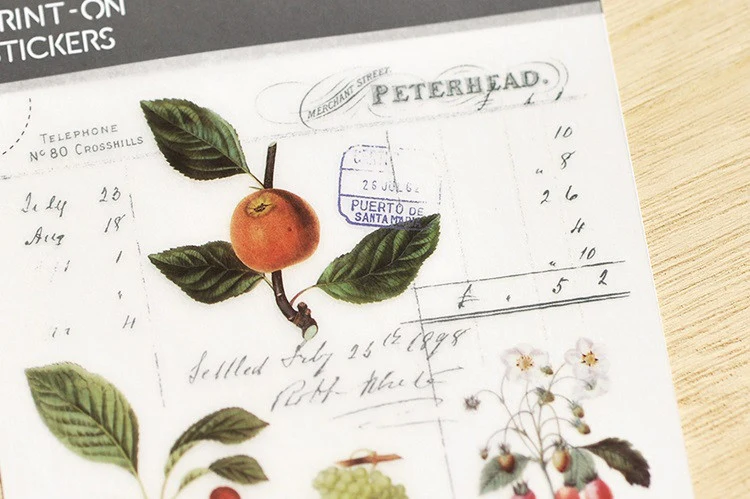 RINT-ON
STICKERS
MERCHANT STREET
PETERHEAD.
TELEPHONE
Nº 80 CROSSHILLS
10
July 23
" 8
26 JUL 61
Aug 18
2 6
PUERTO DE
SANTA MARIA
1
4
" 10
" 4
£ " 5 2
Settled July 25th 1898